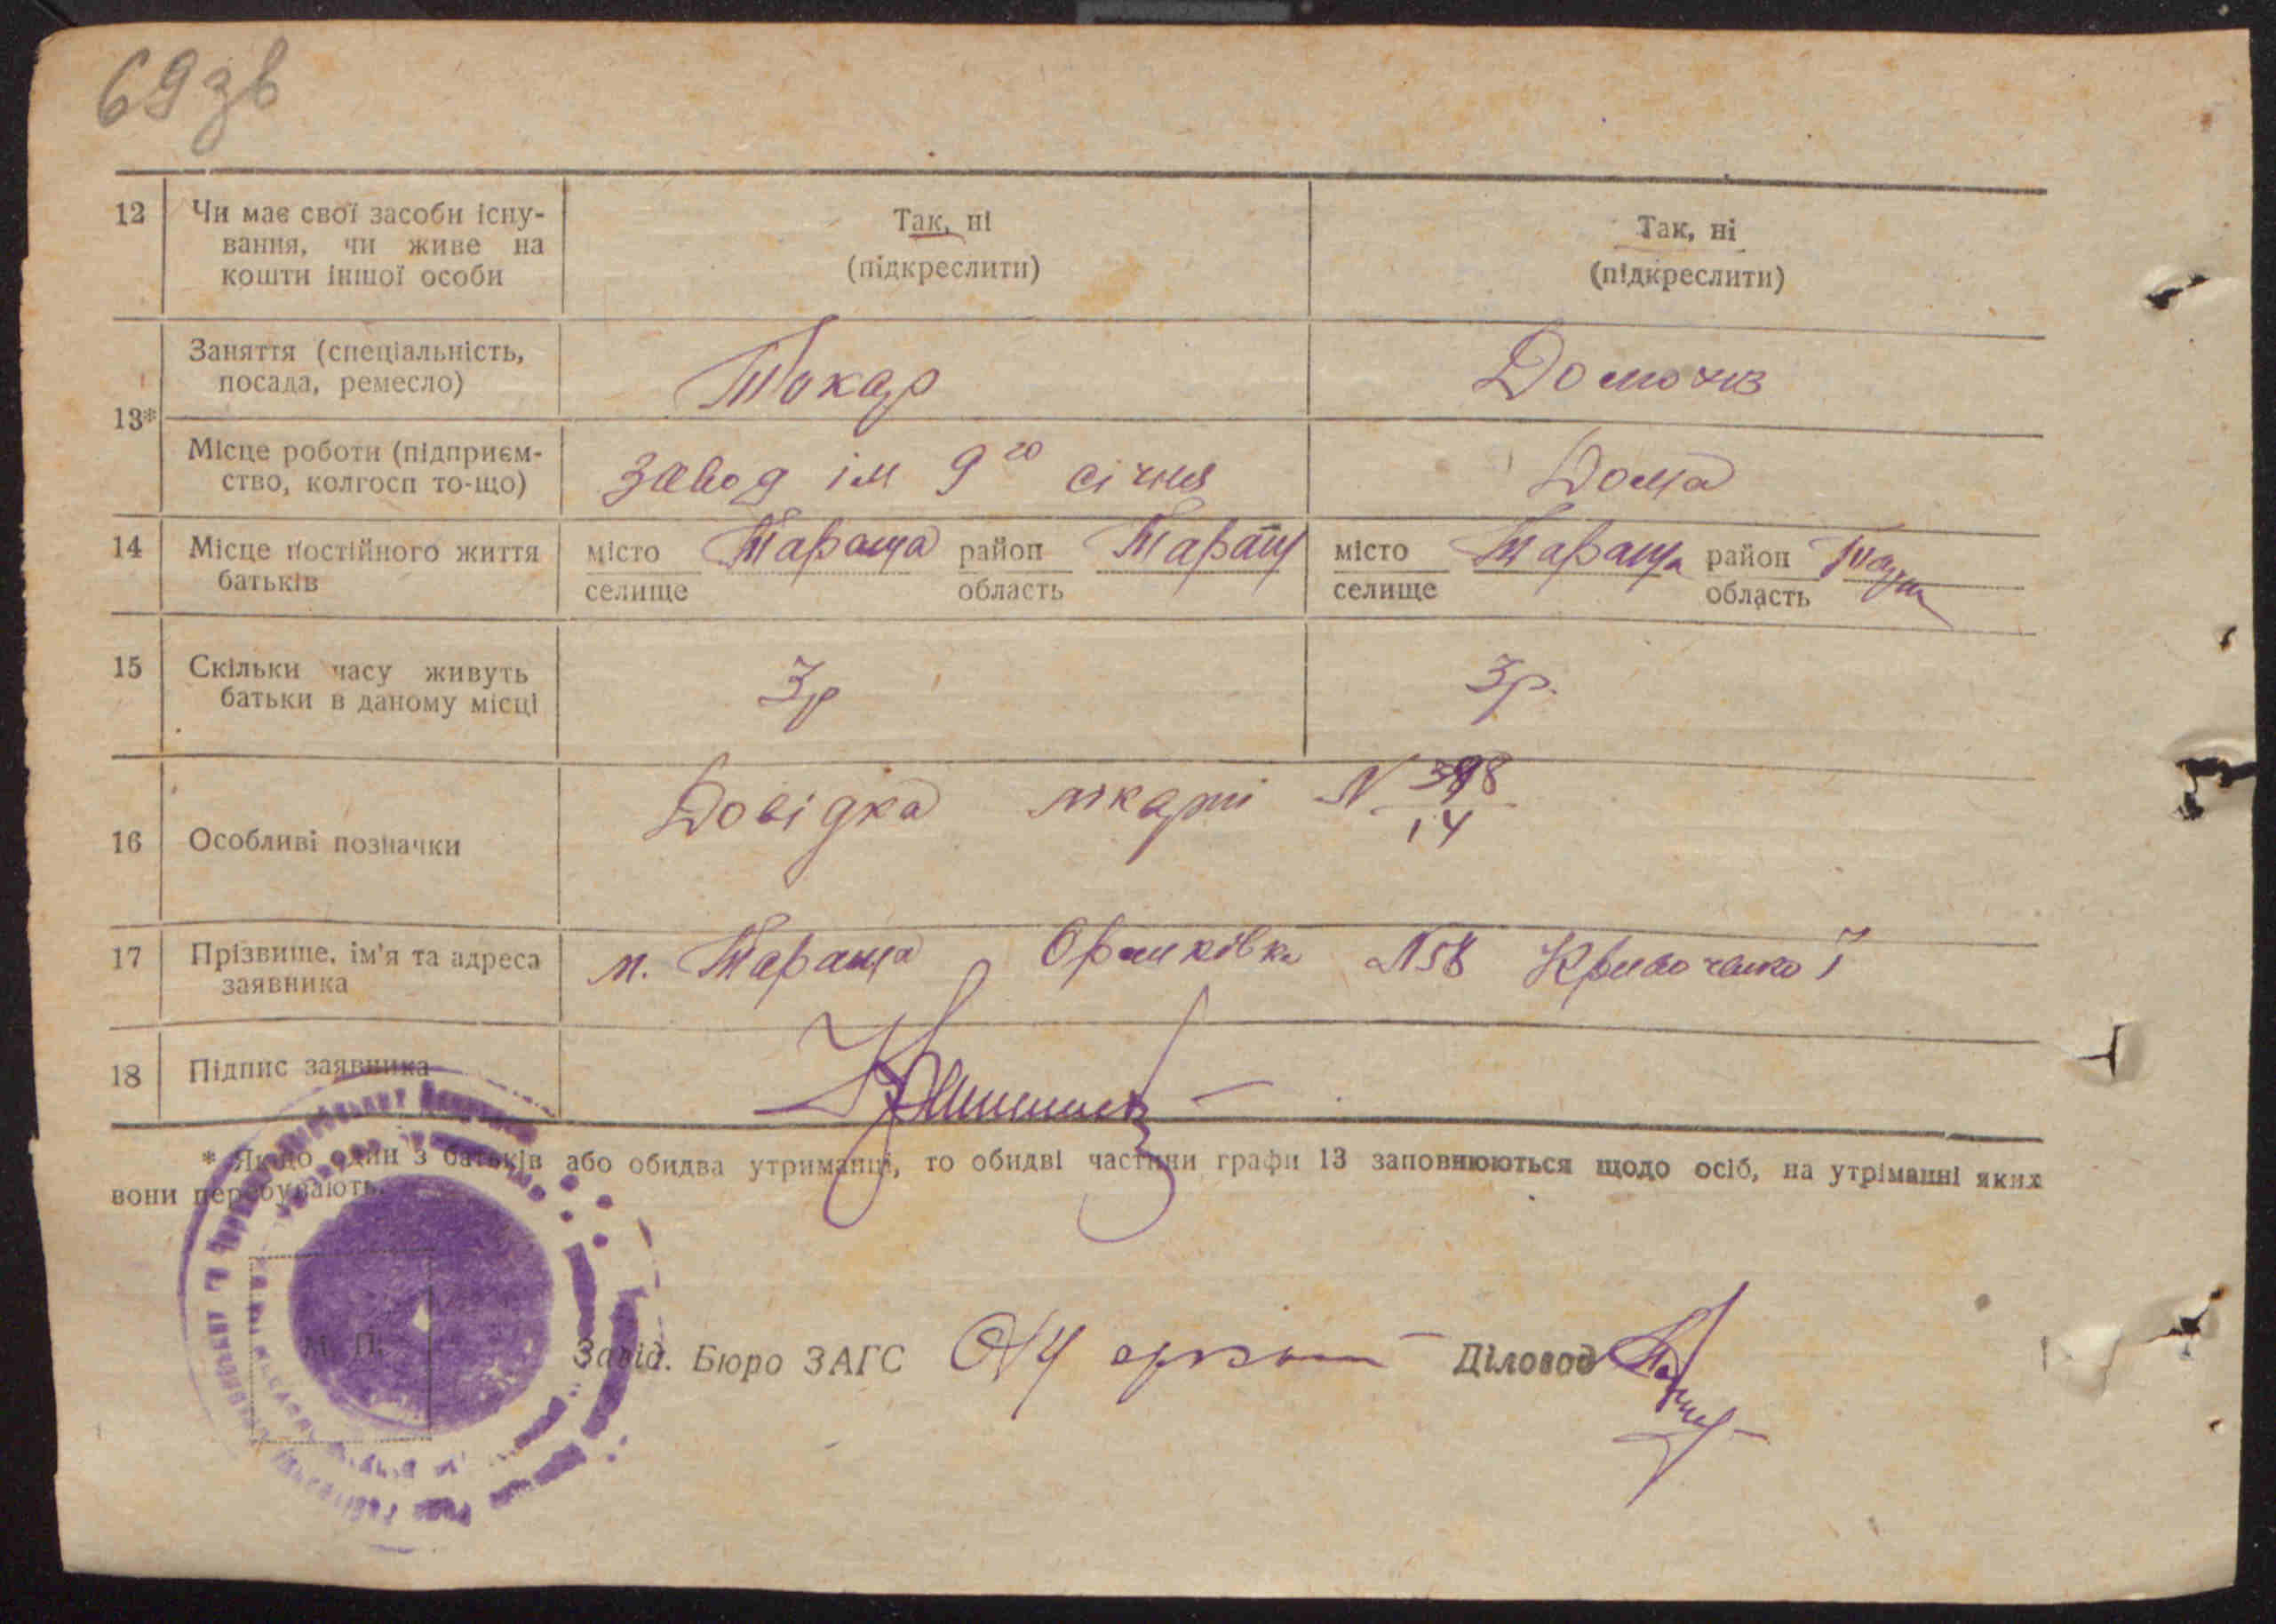 69зв
12 Чи має свої засоби існу- Так, ні Так, ні
вання, чи живе на (підкреслити) (підкреслити)
кошти іншої особи
13* Заняття (спеціальність, Токар Домогоз
посада, ремесло)
Місце роботи (підприєм- завод ім 9го січня Дома
ство, колгосп то-що)
14 Місце постійного життя місто Тараща район Таращ місто Тараща район
батьків селище область селище область
15 Скільки часу живуть 3р 3р.
батьки в даному місці
16 Особливі позначки Довідка лікарні N 398/14
17 Прізвище, ім'я та адреса м. Тараща N58
заявника
18 Підпис заявника
* Якщо один з батьків або обидва утриманці, то обидві частини графи 13 заповнюються щодо осіб, на утріманні яких
вони перебувають.
М. П. Завід. Бюро ЗАГС Діловод